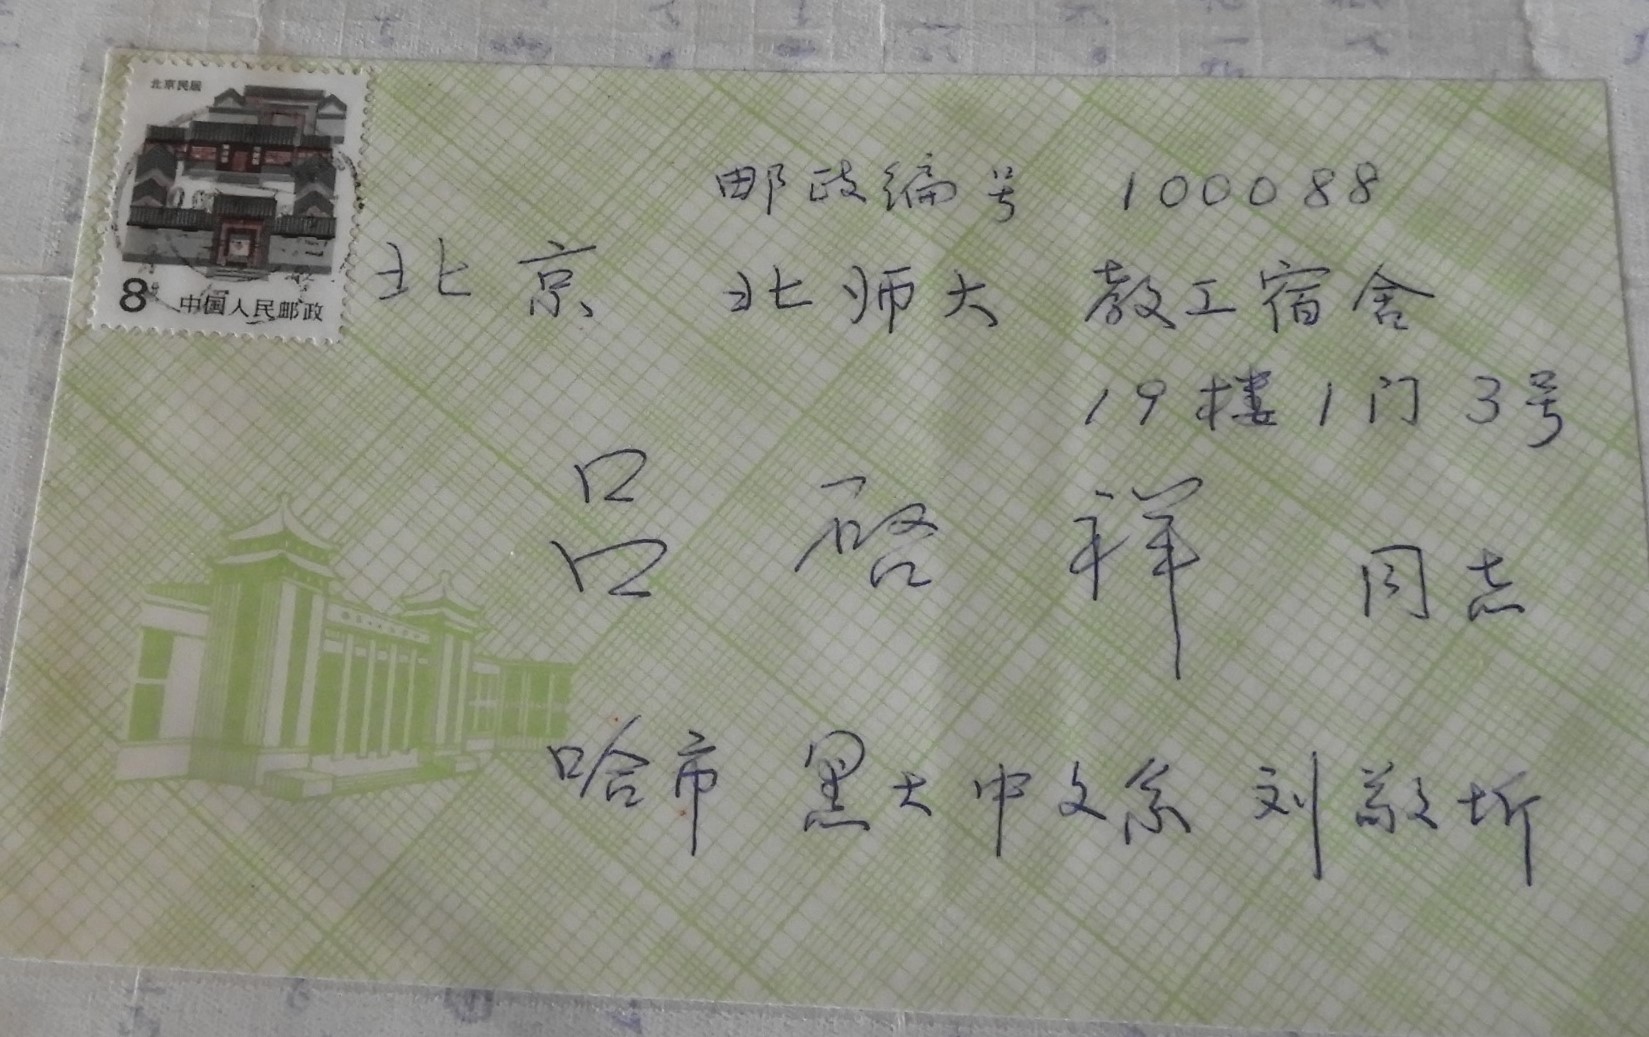 北京民居
8分 中国人民邮政
邮政编号 100088
北京 北师大 教工宿舍
19楼1门3号
吕启祥 同志
哈市 黑大中文系 刘敬圻